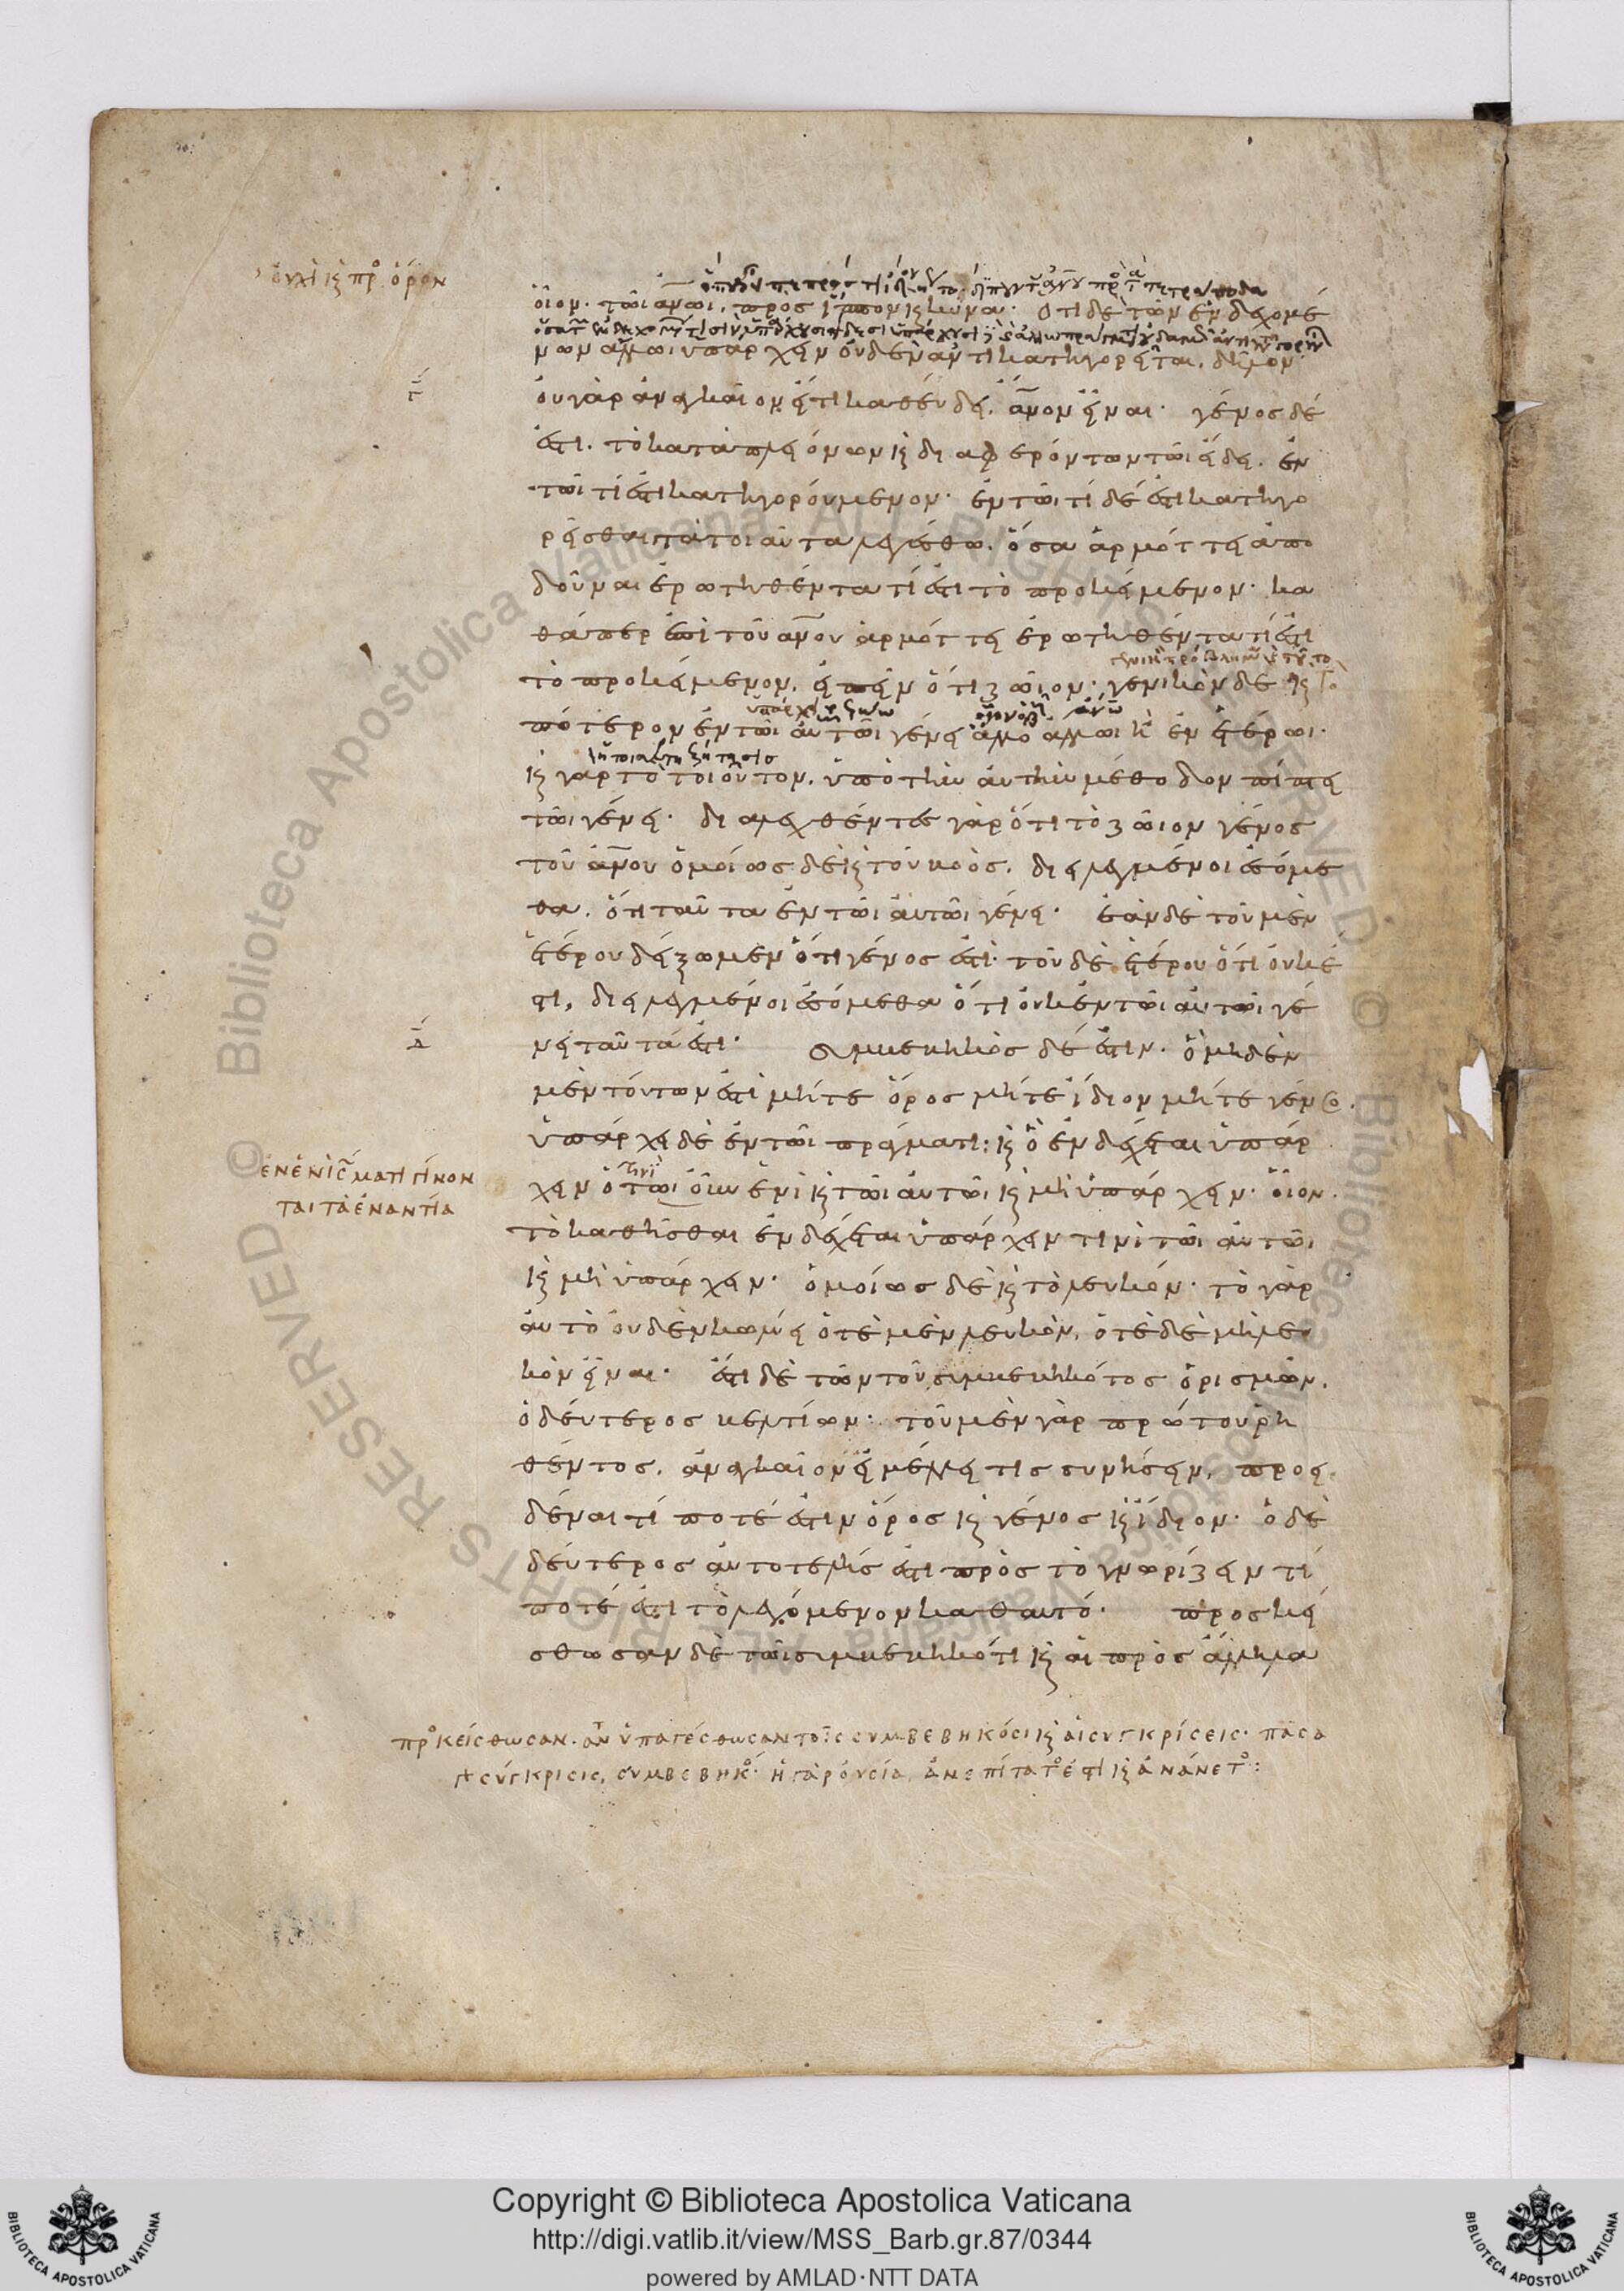 οὐχὶ κ πρ ὅρον
οἷον· τῶι ἀνωι, πρὸς ἵππον κ κύνα· ὅτι δὲ τῶν ἐνδεχομέ
νων ἄλλωι ὑπάρχειν οὐδὲν ἀντικατηγορεῖται, δῆλον·
οὐ γὰρ ἀναγκαῖον εἴ τι καθεύδει, ἄνον εἶναι· γένος δέ
ἐστι, τὸ κατὰ πλειόνων κ διαφερόντων τῶι εἴδει, ἐν
τῶι τί ἐστι κατηγορούμενον· ἐν τῶι τί δέ ἐστι κατηγο
ρεῖσθαι τὰ τοιαῦτα λεγέσθω, ὅσα ἁρμόττει ἀπο
δοῦναι ἐρωτηθέντα τί ἐστι τὸ προκείμενον· κα
θάπερ ἐπὶ τοῦ ἀνου ἁρμόττει ἐρωτηθέντα τί ἐστι
τὸ προκείμενον, εἰπεῖν ὅτι ζῶιον· γενικὸν δὲ κ τὸ
πότερον ἐν τῶι αὐτῶι γένει ἄλλο ἄλλωι ἢ ἐν ἑτέρωι·
κ γὰρ τὸ τοιοῦτον, ὑπὸ τὴν αὐτὴν μέθοδον πίπτει
τῶι γένει· διαλεχθέντες γὰρ ὅτι τὸ ζῶιον γένος
τοῦ ἀνου ὁμοίως δὲ κ τοῦ βοός, διειλεγμένοι ἐσόμε
θα, ὅτι ταῦτα ἐν τῶι αὐτῶι γένει· ἐὰν δὲ τοῦ μὲν
ἑτέρου δείξωμεν ὅτι γένος ἐστὶ τοῦ δὲ ἑτέρου ὅτι οὐκ ἔ
στι, διειλεγμένοι ἐσόμεθα ὅτι οὐκ ἐν τῶι αὐτῶι γέ
νει ταῦτά ἐστι· συμβεβηκὸς δέ ἐστιν, ὃ μηδὲν
μὲν τούτων ἐστὶ μήτε ὅρος μήτε ἴδιον μήτε γένος.
ὑπάρχει δὲ ἐν τῶι πράγματι: κ ὃ ἐνδέχεται ὑπάρ
ἐν ἑνὶ σώματι γίνον
ται τὰ ἐναντία
χειν ὁτωιοῦν ἑνὶ κ τῶι αὐτῶι κ μὴ ὑπάρχειν· οἷον·
τὸ καθῆσθαι ἐνδέχεται ὑπάρχειν τινὶ τῶι αὐτῶι
κ μὴ ὑπάρχειν· ὁμοίως δὲ κ τὸ λευκόν· τὸ γὰρ
αὐτὸ οὐδὲν κωλύει ὁτὲ μὲν λευκὸν, ὁτὲ δὲ μὴ λευ
κὸν εἶναι· ἔστι δὲ τῶν τοῦ συμβεβηκότος ὁρισμῶν,
ὁ δεύτερος βελτίων· τοῦ μὲν γὰρ πρώτου ῥη
θέντος, ἀναγκαῖον εἰ μέλλει τις συνήσειν, προει
δέναι τί ποτέ ἐστιν ὅρος κ γένος κ ἴδιον· ὁ δὲ
δεύτερος αὐτοτελής ἐστι πρὸς τὸ γνωρίζειν τί
ποτέ ἐστι τὸ λεγόμενον καθ αυτό· προσκεί
σθωσαν δὲ τῶι συμβεβηκότι κ αἱ πρὸς ἄλληλα
πρκείσθωσαν. ἀν ὑπαγέσθωσαν τοῖς συμβεβηκόσι κ αἱ συγκρίσεις· πᾶσα
σύγκρισις, συμβεβηκ· ἡ γὰρ οὐσία, ἀνεπίτατ ἐστὶ κ ἀνάνετ:
Copyright © Biblioteca Apostolica Vaticana
http://digi.vatlib.it/view/MSS_Barb.gr.87/0344
powered by AMLAD·NTT DATA
BIBLIOTECA APOSTOLICA VATICANA
BIBLIOTECA APOSTOLICA VATICANA